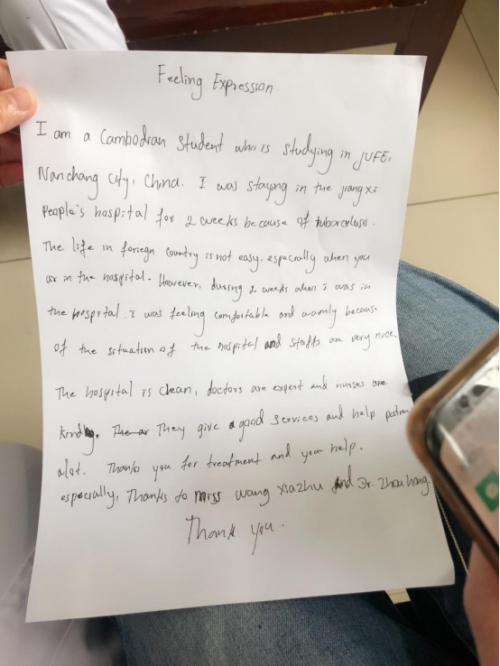 Feeling Expression
I am a Cambodian student who is studying in JUFE,
Nanchang City, China. I was staying in the jiangxi
People's hospital for 2 weeks because of tuborculoso.
The life in foriegn country is not easy. especially when you
are in the hospital. However, during 2 weeks when i was in
the hospital. i was feeling comfortable and warmly because
of the situation of the hospital and staffs are very nice.
The hospital is clean, doctors are expert and nurses are
kindly. They give a good services and help
alot. Thanks you for treatment and your help.
especially, Thanks to miss wang xiazhu and Dr. Zhou hang.
Thank you.